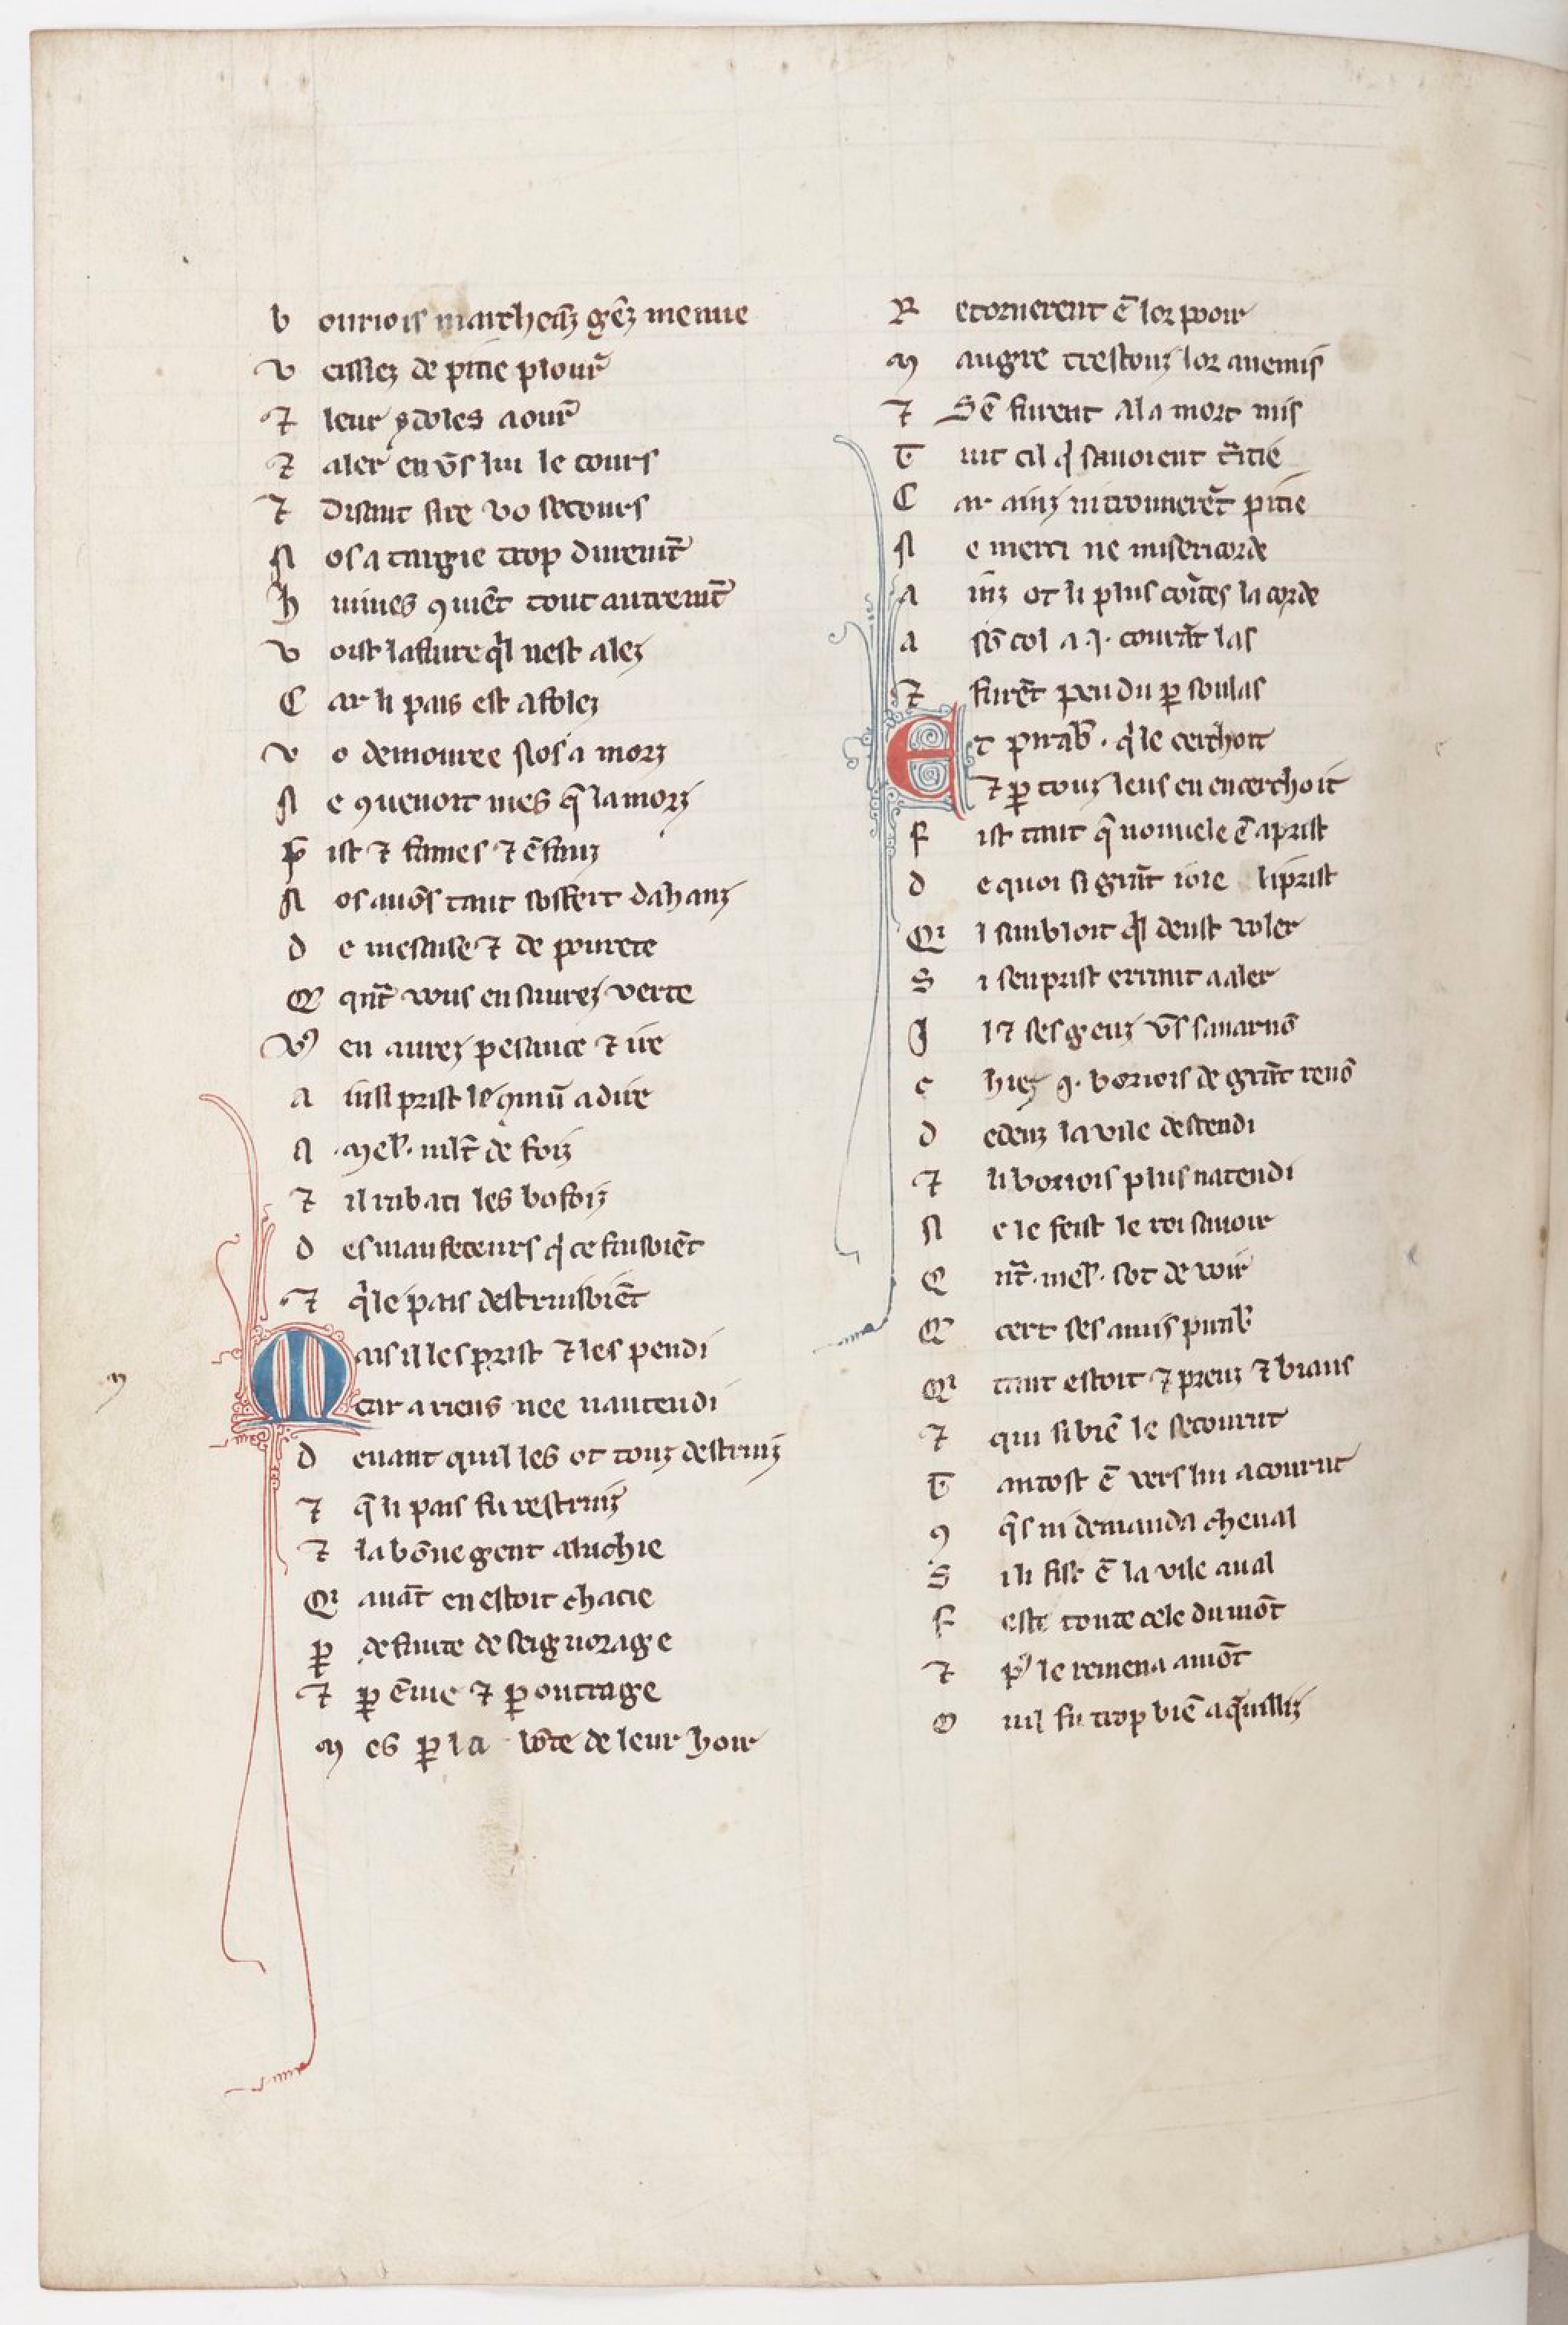 B ouriois marcheāz gēz menue
V eissiez de pitie plour̄
⁊ leur ydoles aour̄
⁊ aler en v̄s lui le cours
⁊ disant sire vo secours
N os a targie trop durem̄t
H uimes ꝯuiēt tout autrem̄t
V oist lafaire qͥl nest alez
C ar li pais est afolez
V o demouree nos a morz
N e ꝯuenoit mes q̄ la morz
P̄ ist ⁊ fames ⁊ ēfanz
N os auōs tant soffert dahanz
D e mesaise ⁊ de pourete
Q qnt̄ vous en saurez verte
Vꝰ en aurez pesance ⁊ ire
A insi prist le ꝯmū a dire
A . mel̾ . uilt̄ de foiz
⁊ il rabati les bofoiz
D es maufeteurs qͥ ce faisoiēt
⁊ qͥ le pais destruisoiēt
M ais il les prist ⁊ les pendi
car a riens nee nantendi
D euant quil les ot touz destruiz
⁊ q̄ li pais fu restruiz
⁊ la bōne gent aluchie
Qͥ auāt en estoit chacie
ꝑ defaute de seignorage
⁊ ꝑ ēuie ⁊ ꝑ outrage
M es ꝑ la bōte de leur hoir
R etornerent ē lor pooir
M augre trestouz lor anemis
⁊ Sē furent a la mort mis
T uit cil qͥ sauoient t̾itie
C ar ainz ni trouuerēt pitie
N e merci ne misericorde
A inz ot li plus cort̾es la corde
A sō col a .i. courāt las
⁊ furēt pendu ꝑ soulas
E t pirab̾ . qͥ le cerchoit
⁊ ꝑ touz leus en encerchoit
F ist tant q̄ nouuele ē aprist
D e quoi si grāt ioie li prist
Qͥ l sambloit qͥl deust voler
S i sen prist erramt a aler
J l ⁊ ses genz v̄s sauarnō
C hiez .i. boriois de grāt renō
D edenz la vile descendi
⁊ li boriois plus natendi
N e le feist le roi sauoir
Q nt̄ . mel̾ . sot de voir
Q cert ses amis pirab̾
Qͥ tant estoit ⁊ preuz ⁊ biaus
⁊ qui si biē le secourut
T antost ē vers lui acourut
ꝯ q̄s ni demanda cheual
S i li fist ē la vile aual
F este toute cele du mōt
⁊ pͥ le remena amōt
O uil fu trop biē aq̄uilliz
m